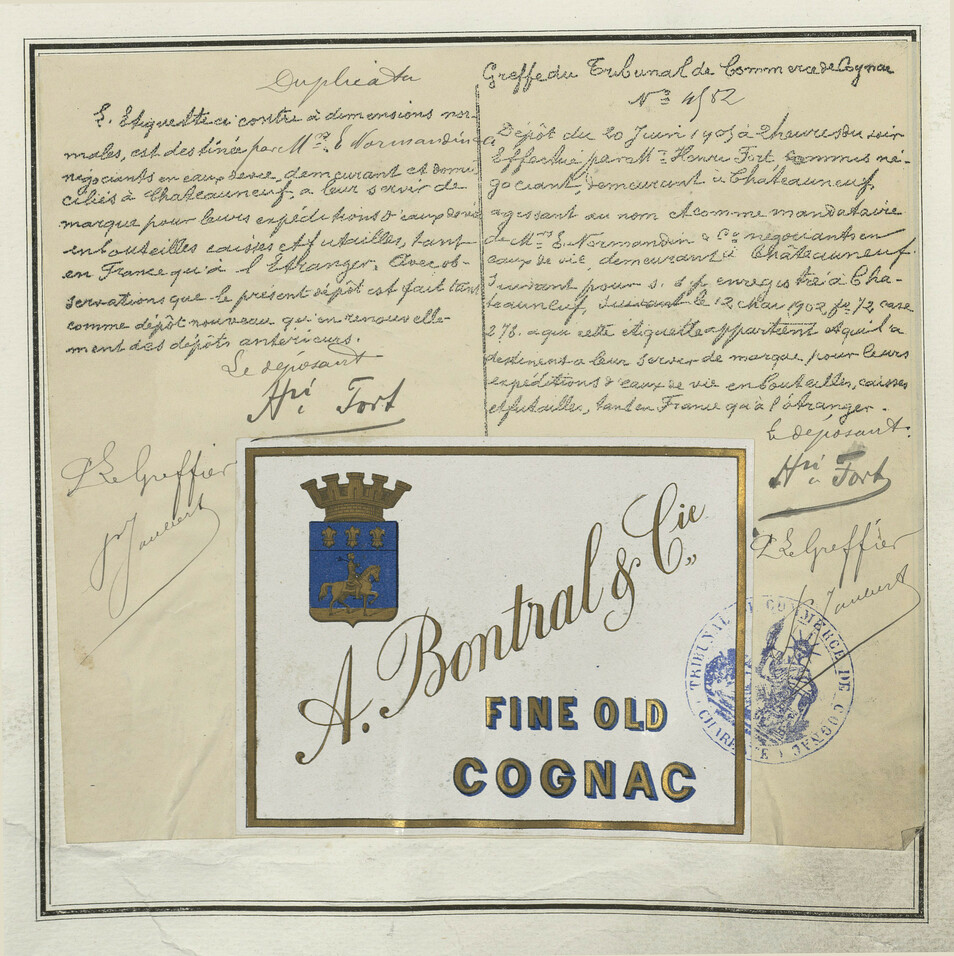 Duplicata
L'Etiquette ci contre à dimensions nor-
males, est destinée par Mrs. E. Normandin &
négociants en eaux de vie, demeurant et domi
ciliés à Chateauneuf, a leur servir de
marque pour leurs expéditions d'eaux de vie
en bouteilles caisses et futailles, tant
en France qu'à l'Etranger. Avec ob-
servations que le présent dépôt est fait tant
comme dépôt nouveau qu'en renouvelle-
ment des dépôts antérieurs.
Le déposant
Hri Fort
Le Greffier
Greffe du Tribunal de Commerce de Cognac
No 4582
Dépôt du 20 Juin 1905 à 2 heures du soir
Effectué par Mr Henri Fort commis né-
gociant, demeurant à Chateauneuf,
agissant au nom et comme mandataire
de Mrs E. Normandin & Co négociants en
eaux de vie, demeurant à Chateauneuf
suivant pour s. s. p. enregistré à Cha-
teauneuf, suivant le 12 Mai 1902 fo 72 case
278. a qui cette étiquette appartient et qu'il a
destinent a leur servir de marque pour leurs
expéditions d'eaux de vie en bouteilles, caisses
et futailles, tant en France qu'à l'étranger.
Le déposant.
Hri Fort
Le Greffier
A. Bontral & Cie
FINE OLD
COGNAC
TRIBUNAL DE COMMERCE DE COGNAC